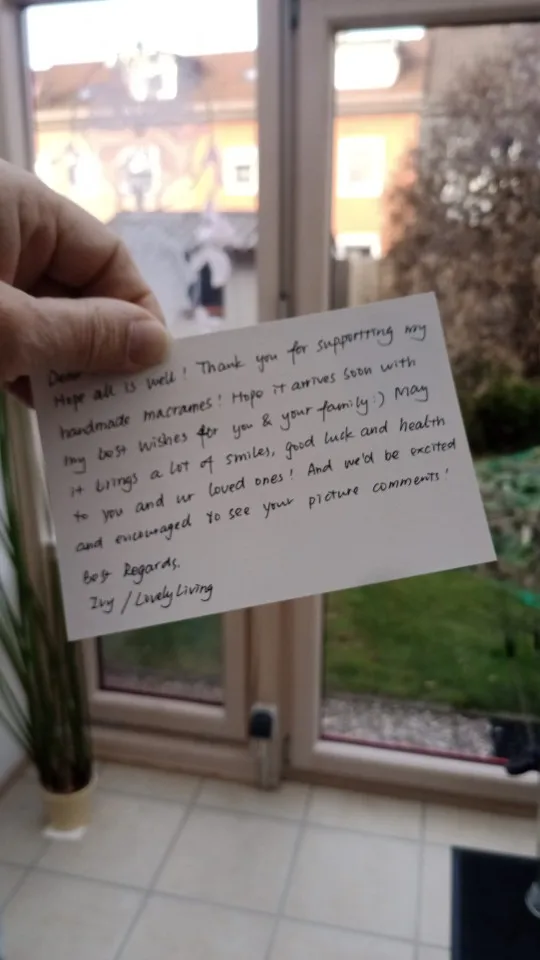 Dear
Hope all is well! Thank you for supportting my
handmade macrames! Hope it arrives soon with
my best wishes for you & your family:) May
it brings a lot of smiles, good luck and health
to you and ur loved ones! And we'd be excited
and encouraged to see your picture comments!
Best Regards,
Ivy / LovelyLiving